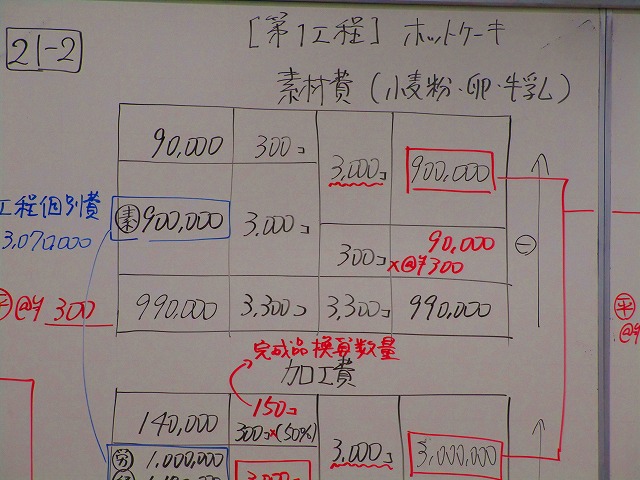 21-2
[第1工程] ホットケーキ
素材費 (小麦粉・卵・牛乳)
90,000 300コ 3,000コ 900,000
工程個別費
3,070,000
素 900,000 3,000コ
300コ 90,000
×@¥300
平 @¥300
990,000 3,300コ 3,300コ 990,000
平
@¥
完成品換算数量
加工費
140,000 150コ
300コ×(50%)
3,000コ 3,000,000
労 1,000,000